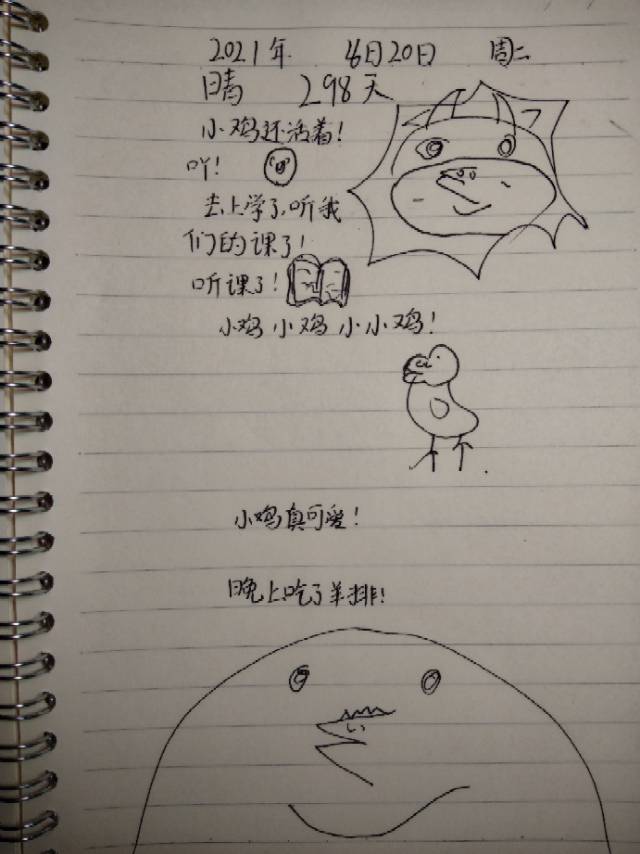 2021年 4月20日 周二
晴 298天
小鸡还活着!
吖!
去上学了,听我
们的课了!
听课了!
小鸡小鸡小小鸡!
小鸡真可爱!
晚上吃了羊排!